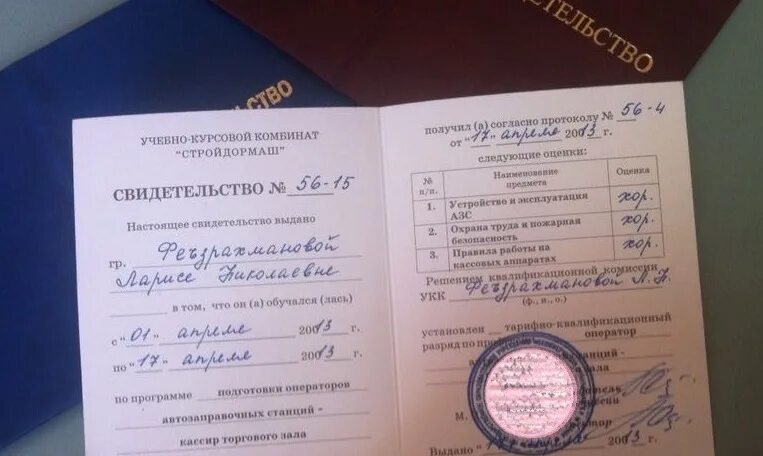 СТВО
ДЕТЕЛЬСТВО
УЧЕБНО-КУРСОВОЙ КОМБИНАТ
"СТРОЙДОРМАШ"
СВИДЕТЕЛЬСТВО № 56-15
Настоящее свидетельство выдано
гр. Фейзрахмановой
Ларисе Николаевне
в том, что он (а) обучался (лась)
с "01" апреля 2013 г.
по "17" апреля 2013 г.
по программе подготовки операторов
автозаправочных станций -
кассир торгового зала
получил (а) согласно протоколу № 56-4
от "17" апреля 2013 г.
следующие оценки:
№ п/п. Наименование предмета Оценка
1. Устройство и эксплуатация АЗС хор.
2. Охрана труда и пожарная безопасность хор.
3. Правила работы на кассовых аппаратах хор.
Решением квалификационной комиссии
УКК Фейзрахмановой Л.Н.
(ф., и., о.)
установлен тарифно-квалификационный
разряд по оператор
станций -
М.
Выдано "17 2013 г.